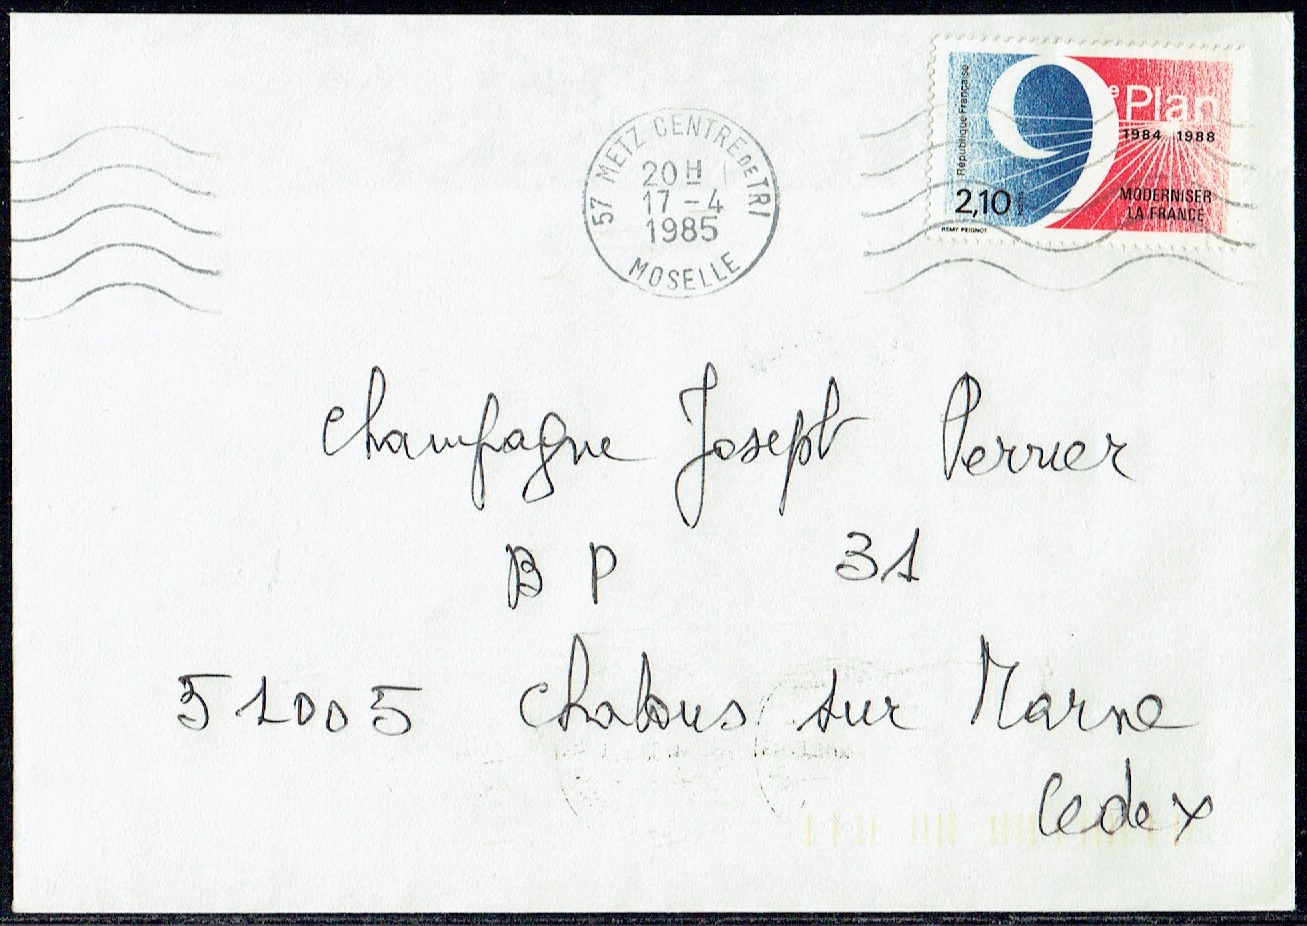 57 METZ CENTRE DE TRI
20H
17-4
1985
MOSELLE
République Française
9e Plan
1984 1988
MODERNISER
LA FRANCE
2,10
REMY PEIGNOT
Champagne Joseph Perrier
B P 31
51005 Chalons sur Marne
Cedex